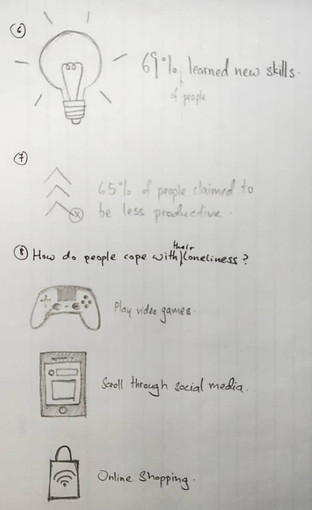 6
69% learned new skills.
of people
7
65% of people claimed to
be less productive.
8 How do people cope with their loneliness?
Play video games.
Scroll through social media.
Online Shopping.